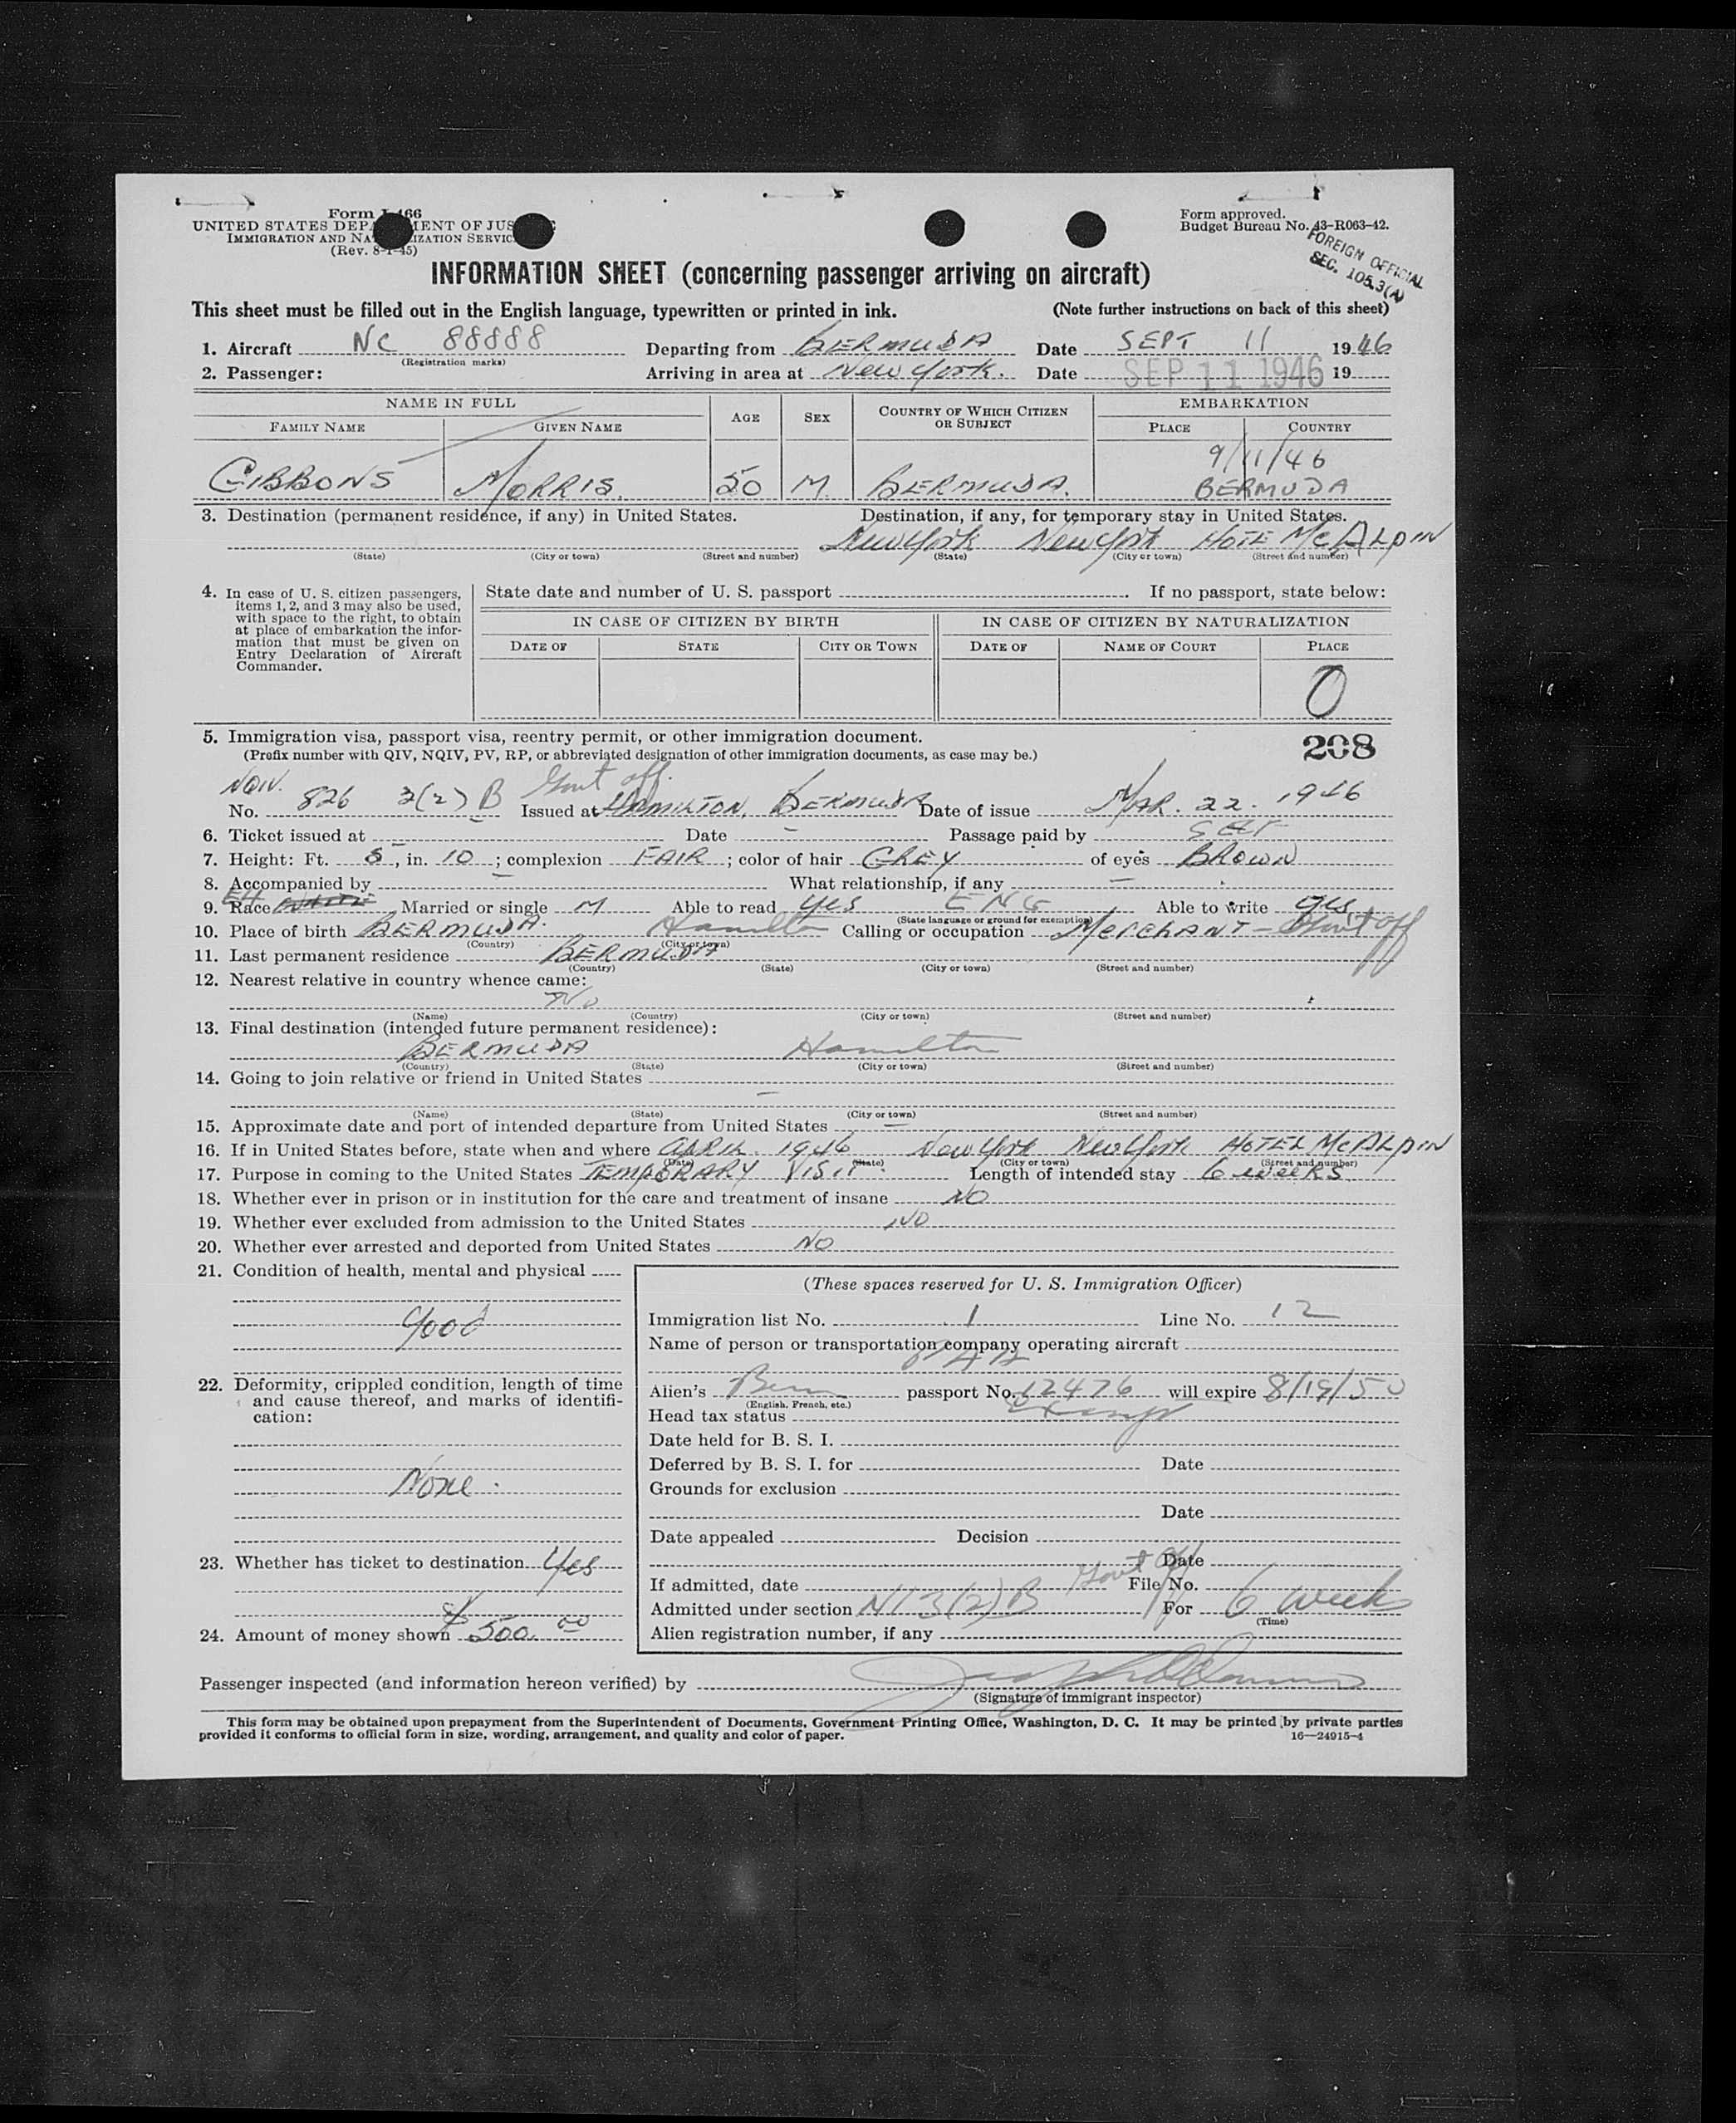 Form I-466
UNITED STATES DEPARTMENT OF JUSTICE
IMMIGRATION AND NATURALIZATION SERVICE
(Rev. 8-1-45)
Form approved.
Budget Bureau No. 43-R063-42.
FOREIGN OFFICIAL
SEC. 105.3(A)
INFORMATION SHEET (concerning passenger arriving on aircraft)
This sheet must be filled out in the English language, typewritten or printed in ink. (Note further instructions on back of this sheet)
1. Aircraft NC 88888 Departing from BERMUDA Date SEPT 11 1946
(Registration marks)
2. Passenger: Arriving in area at New York. Date SEP 11 1946 19
NAME IN FULL AGE SEX COUNTRY OF WHICH CITIZEN OR SUBJECT EMBARKATION
FAMILY NAME GIVEN NAME PLACE COUNTRY
9/11/46
GIBBONS MORRIS. 50 M. BERMUDA. BERMUDA
3. Destination (permanent residence, if any) in United States. Destination, if any, for temporary stay in United States.
New York New York HOTE McALPIN
(State) (City or town) (Street and number) (State) (City or town) (Street and number)
4. In case of U. S. citizen passengers, items 1, 2, and 3 may also be used, with space to the right, to obtain at place of embarkation the information that must be given on Entry Declaration of Aircraft Commander.
State date and number of U. S. passport If no passport, state below:
IN CASE OF CITIZEN BY BIRTH IN CASE OF CITIZEN BY NATURALIZATION
DATE OF STATE CITY OR TOWN DATE OF NAME OF COURT PLACE
0
5. Immigration visa, passport visa, reentry permit, or other immigration document. 208
(Prefix number with QIV, NQIV, PV, RP, or abbreviated designation of other immigration documents, as case may be.)
NQIV. Govt off.
No. 826 3(2) B Issued at HAMILTON, BERMUDA Date of issue MAR. 22. 1946
6. Ticket issued at Date – Passage paid by SELF
7. Height: Ft. 5, in. 10; complexion FAIR; color of hair GREY of eyes BROWN
8. Accompanied by – What relationship, if any –
9. Race WHITE Married or single M Able to read yes ENG Able to write yes
(State language or ground for exemption)
10. Place of birth BERMUDA. Hamilton Calling or occupation MERCHANT – Govt off
(Country) (City or town)
11. Last permanent residence BERMUDA
(Country) (State) (City or town) (Street and number)
12. Nearest relative in country whence came:
No
(Name) (Country) (City or town) (Street and number)
13. Final destination (intended future permanent residence):
BERMUDA Hamilton
(Country) (State) (City or town) (Street and number)
14. Going to join relative or friend in United States
–
(Name) (State) (City or town) (Street and number)
15. Approximate date and port of intended departure from United States –
16. If in United States before, state when and where APRIL 1946 New York New York HOTEL McALPIN
(Date) (State) (City or town) (Street and number)
17. Purpose in coming to the United States TEMPORARY VISIT. Length of intended stay 6 weeks.
18. Whether ever in prison or in institution for the care and treatment of insane NO
19. Whether ever excluded from admission to the United States NO
20. Whether ever arrested and deported from United States NO
21. Condition of health, mental and physical
Good
22. Deformity, crippled condition, length of time and cause thereof, and marks of identification:
None.
23. Whether has ticket to destination Yes
24. Amount of money shown $500.00
(These spaces reserved for U. S. Immigration Officer)
Immigration list No. 1 Line No. 12
Name of person or transportation company operating aircraft
PAA
Alien's Berm passport No. 12476 will expire 8/19/50
(English, French, etc.)
Head tax status Exempt
Date held for B. S. I.
Deferred by B. S. I. for Date
Grounds for exclusion
Date
Date appealed Decision
Date
If admitted, date Govt Off File No.
Admitted under section NI 3(2) B For 6 weeks
(Time)
Alien registration number, if any
Passenger inspected (and information hereon verified) by
(Signature of immigrant inspector)
This form may be obtained upon prepayment from the Superintendent of Documents, Government Printing Office, Washington, D. C. It may be printed by private parties
provided it conforms to official form in size, wording, arrangement, and quality and color of paper. 16—24915-4